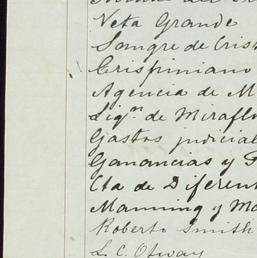 Veta Grande
Sangre de Cris
Crispiniano
Agencia de M
Liqn de Miraflo
Gastos judicial
Ganancias y P
Cta de Diferen
Manning y Ma
Roberto Smith
L. C. Otway